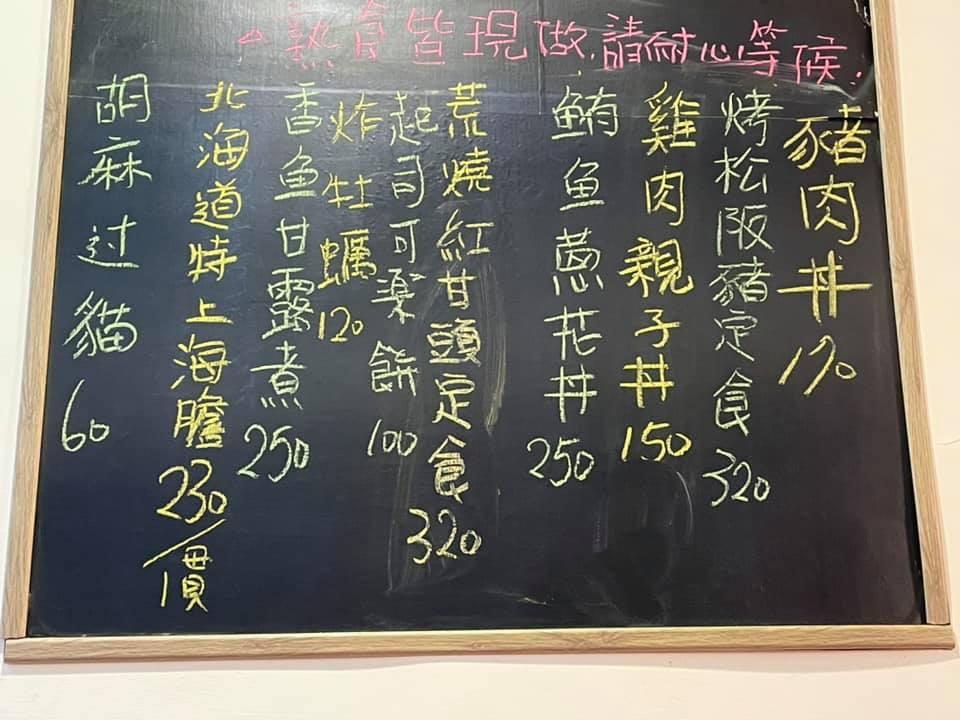 △熟食皆現做,請耐心等候.
豬肉丼170
烤松阪豬定食320
雞肉親子丼150
鮪鱼蔥花丼250
荒燒紅甘頭定食320
起司可樂餅100
炸牡蠣120
香鱼甘露煮250
北海道特上海膽230/
胡麻过貓60